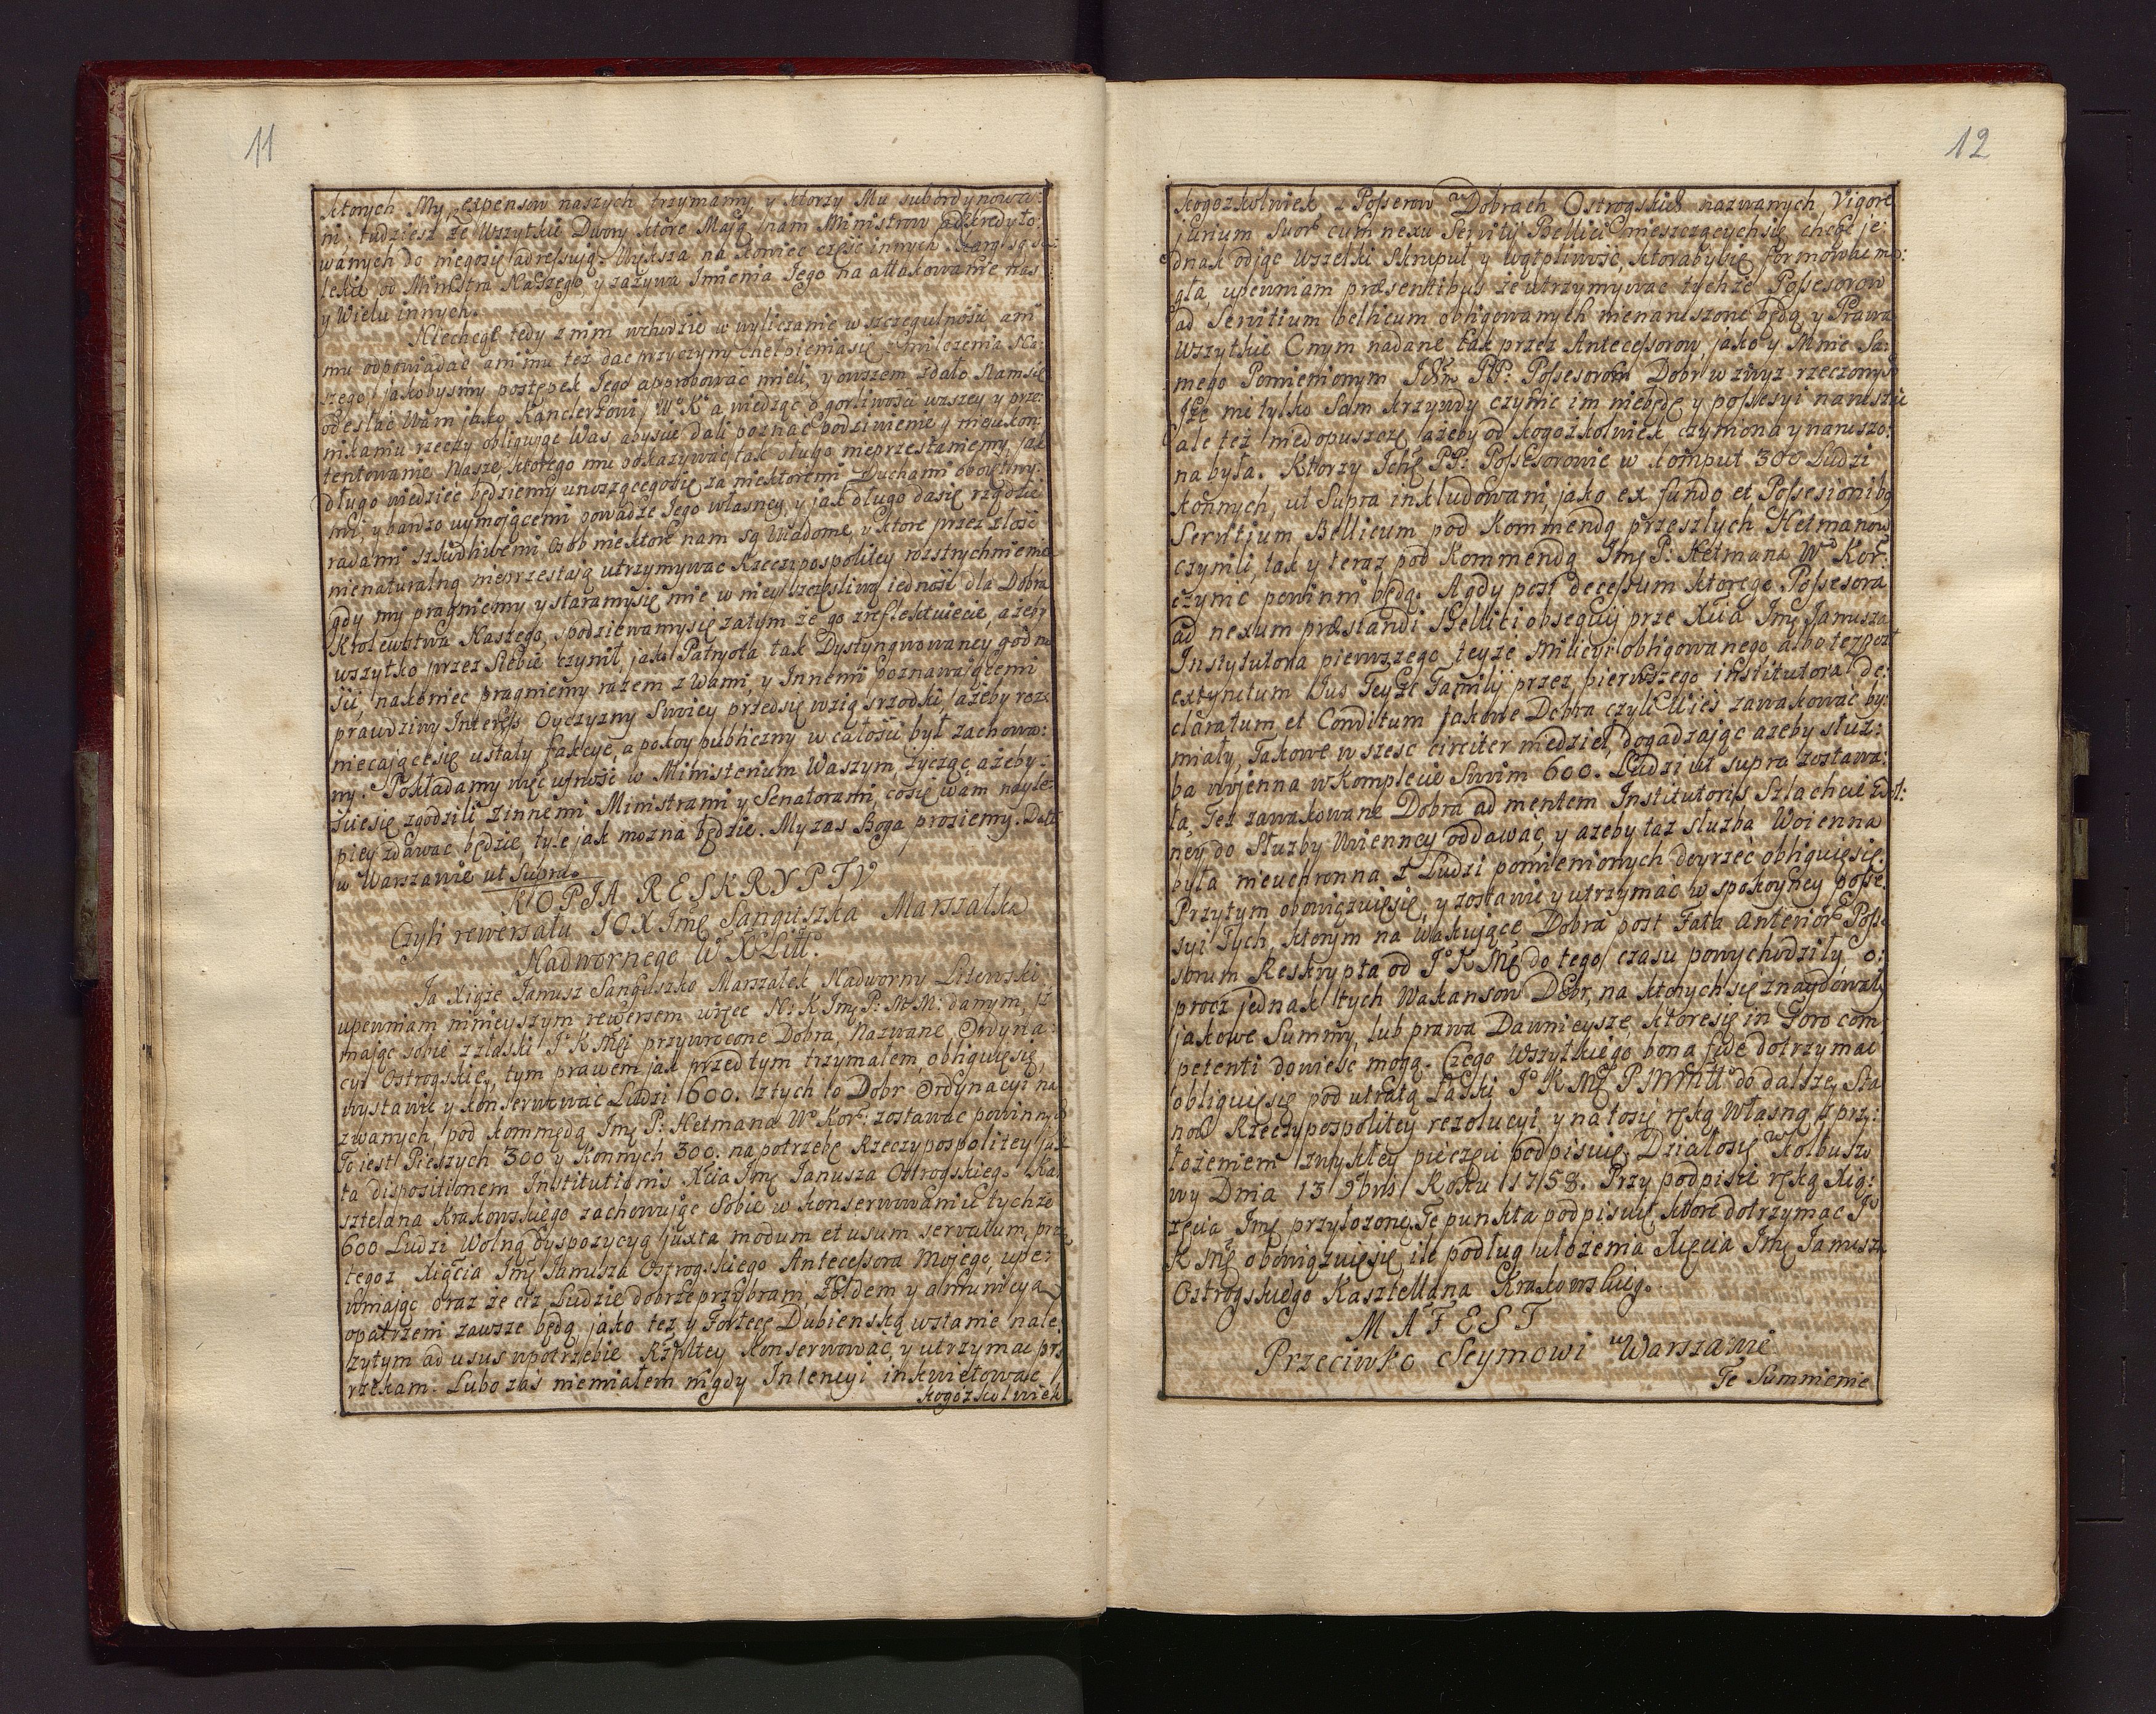 11
ktorych My expensow naszych trzymamy, y ktorzy Mu subordynowa:
ni, tudziesz że Wszytkie Dwory które Mają nam Ministrow adkredyto:
wanych do niegosię adressują. Większa na koniec część innych
leku od Ministra Naszego, y zażywa Imienia Jego na attakowanie nas
y Wielu innych.
Niechcąc tedy z nim wchodzić w wyliczanie w szczegulności ani
mu odpowiadać ani mu też dać przyczyny chełpieniasię z milczenia Na:
szego jakobysmy postępek Jego approbować mieli, y owszem zdało Namsię
odesłać Wam jako Kanclerzowi Wo Ko a wiedząc o gorliwości waszey y prze:
nikaniu rzeczy obligując Was abyscie dali poznac podziwienie y nieukon:
tentowanie Nasze, ktorego mu pokazywać tak długo nieprzestaniemy, jak
długo wiedzieć będziemy unoszącegosię za niektoremi Duchami obrotny:
mi, y bardzo uymojącemi powadze Jego własney, y jak długo dasię rządzić
radami szkodliwemi Osob niektore nam są Wiadome, y ktore przez złość
nienaturalną nieprzestają utrzymywac Rzeczypospolitey rozstrychnienie
gdy my pragniemy y staramysię mie w niey szczęsliwą iedność dla Dobra
Krolewstwa Naszego, spodziewamysię zatym że go zreflektuiecie, ażeby
wszytko przez Siebie czynił, jako Patryota tak Dystyngwowaney godno
ści, nakoniec pragniemy razem z Wami, y Innemi poznawaiącemi
prawdziwy Interess Oyczyzny Swoiey przedsię wziąśrzodki, ażeby roz:
niecającesię ustały fakcye, a pokoy publiczny w całości był zachowa:
ny. Pokładamy więc ufność w Ministerium Waszym, życząc, ażeby:
sciesię zgodzili z innemi Ministrami y Senatorami, cosię wam nayle:
piey zdawać będzie, tyle jak mozna będzie. My zas Boga prosiemy. Datt
w Warszawie ut Supra.
KOPIA RESKRYPTV
Czyli rewersału JOX Imę Sanguszka Marszałka
Nadwornego W. X. Litt.
Ja Xiąże Janusz Sanguszko Marszałek Nadworny Litewski
upewniam ninieyszym rewersem wręce N: K Imę P: M M: danym, iż
mając sobie z łaski Jo K Mci przywrocone Dobra, Nazwane Ordyna:
cyi Ostrogskiey, tym prawem jak przed tym trzymałem, obliguięsię,
wystawić y konserwować Ludzi 600. z tych to Dobr Ordynacyi na
zwanych, pod kommędą Imę P: Hetmana Wo Kor: zostawać powinnych
To iest Pieszych 300 y Konnych 300. na potrzebę Rzeczypospolitey jux
ta dispositionem Institutionis Xcia Imę Janusza Ostrogskiego Ka:
sztelana Krakowskiego zachowując Sobie w konserwowaniu tychze
600 Ludzi Wolną dyspozycyą juxta modum et usum servatum, prze
tegoz Xięcia Imę Janusza Ostrogskiego Antecessora Mojego, upe:
wniając oraz że ciż Ludzie dobrze przybrani, Żołdem y amunicyą
opatrzeni zawsze będą, jako też y Fortecę Dubienską wstanie nale:
żytym ad usus wpotrzebie Rzpltey Konserwować, y utrzymac prz
rzekam. Lubo zas niemiałem nigdy Intencyi inkwietować
kogożkolwiek
12
kogożkolwiek z Possessorow w Dobrach Ostrogskich nazwanych Vigore
jurium Suor cum nexu Servitij Bellici mieszczącychsię chcąc je:
dnak odjąc Wszelki Skrupuł y wątpliwość, ktorabysię formować mo:
gła, upewniam præsentibus że utrzymywac tychże Possesorow
ad Servitium bellicum obligowanych nienaruszone będą, y Prawa
Wszytkie Onym nadane tak przez Antecessorow, jako y Mnie Sa:
mego Pomienionym Ichm PP: Possesorom Dobr w zwyz rzeczonych
Iże nietylko Sam krzywdy czynić im niebędę y possesyi naruszac
ale też niedopuszczę ażeby od kogożkolwiek czyniona y naruszo:
na była. Ktorzy Ichę PP: Possesorowie w komput 300 Ludzi
konnych, ut Supra inkludowani, jako ex fundo et Possesionibg
Servitium Bellicum pod Kommendą przeszłych Hetmanow
czynili, tak y teraz pod Kommendą Imę P: Hetmana Wo Kor:
czynić powinni będą. A gdy post decessum ktorego Possesora
ad nexum præstandi Bellici obsequij prze Xcia Imę Janusza
Instytutora pierwszego teyże Milicyi obligowanego albo też post
extynctum Jus Teyże Familij przez pierwszego institutora de:
claratum et Conditum jakowe Dobra czyli Wieś zawakować by:
miały, Takowe w szesc circiter niedziel, dogadzając ażeby służ:
ba wojenna w Komplecie Swoim 600. Ludzi ut supra zostawa:
ła, Też zawakowane Dobra ad mentem Institutoris Szlachcie Zdol:
ney do Służby Woienney oddawać, y ażeby taz służba Woienna
była nieuchronna z Ludzi pomienionych doyrzeć obliguięsię.
Przytym obowiązuięsię, y zostawić y utrzymać w spokoyney posse:
syi Tych, ktorym na wakujące Dobra post Fata Anterior Posse
sorum Reskrypta od Jo K Mę do tego czasu powychodziły, o:
procz jednak tych Wakansow Dobr, na ktorych się znaydowały
jakowe Summy, lub prawa Dawnieysze, ktoresię in Foro com
petenti dowieść mogą. Czego Wszytkiego bona fide dotrzymac
obliguięsię pod utratą Łaski Jo K Mę P M Mtt do dalszey Sta
now Rzeczypospolitey rezolucyi, y na tosię ręką Własną z prz:
łożeniem zwykłey pieczęci podpisuię. Działosię w Kolbuszo
wy Dnia 13 9bris Roku 1758. Przy podpisie ręką Xię:
zęcia Imę przyłozone. Te punkta podpisuię ktore dotrzymac Jo
K Mę obowiązuięsię, ile podług ułożenia Xięcia Imę Janusza
Ostrogskiego Kasztellana Krakowskiego.
MAFEST
Przeciwko Seymowi w Warszawie
Te Sumnienie